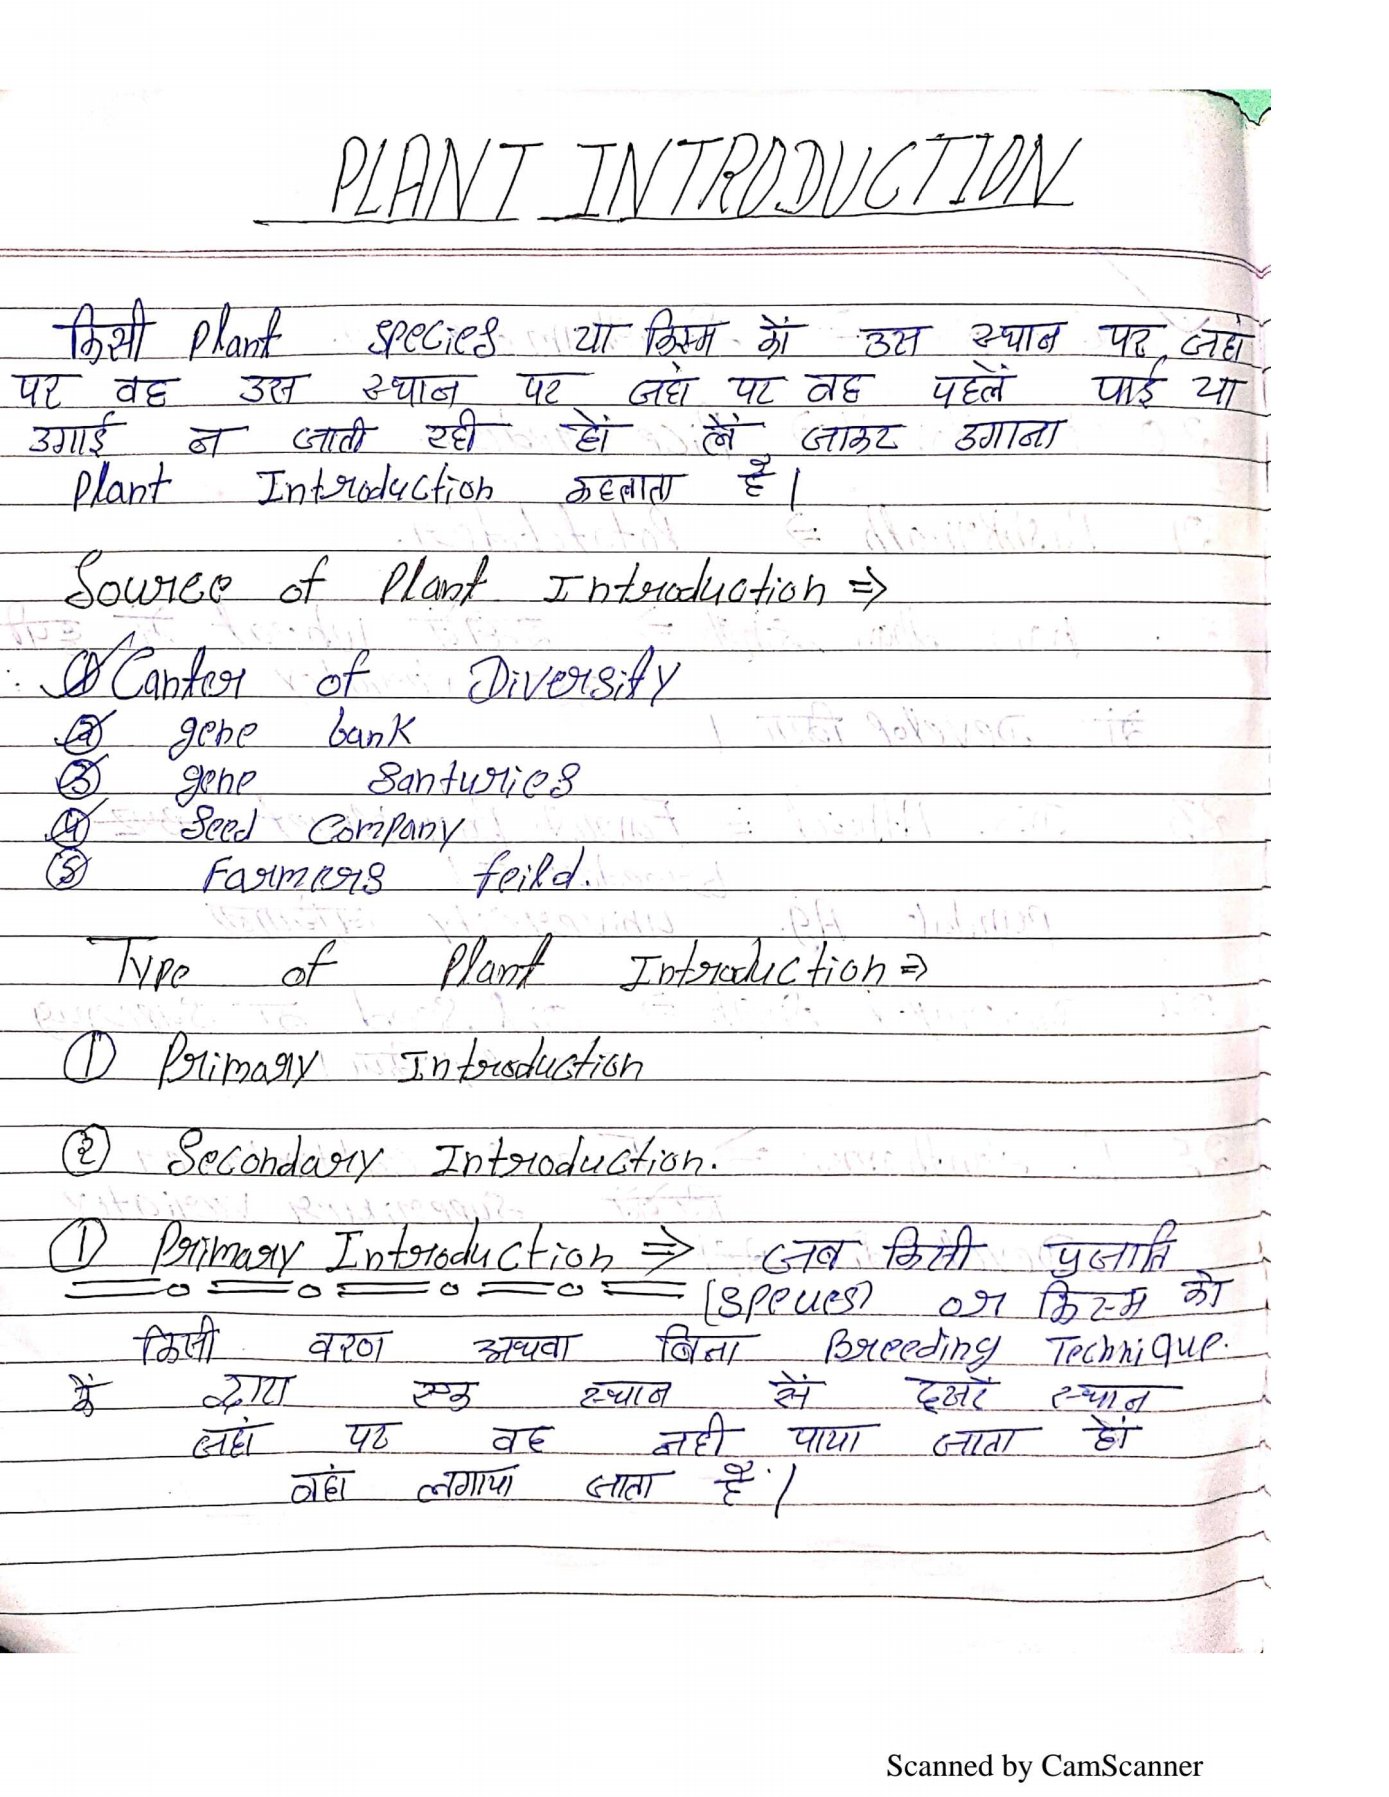 PLANT INTRODUCTION
किसी Plant species या किस्म कों उस स्थान पर जहां
पर वह उस स्थान पर जहां पर वह पहलें पाई या
उगाई न जाती रही हों लें जाकर उगाना
Plant Introduction कहलाता है।
Source of Plant Introduction ⇒
① Canter of Diversity
② gene bank
③ gene Santuries
④ Seed Company
⑤ Farmers feild.
Type of Plant Introduction ⇒
① Primary Introduction
② Secondary Introduction.
① Primary Introduction ⇒ जब किसी प्रजाति
(Species) or किस्म को
किसी वरण अथवा बिना Breeding Technique.
कें द्वारा एक स्थान सें दूसरें स्थान
जहां पर वह नही पाया जाता हों
वहां लगाया जाता है।
Scanned by CamScanner